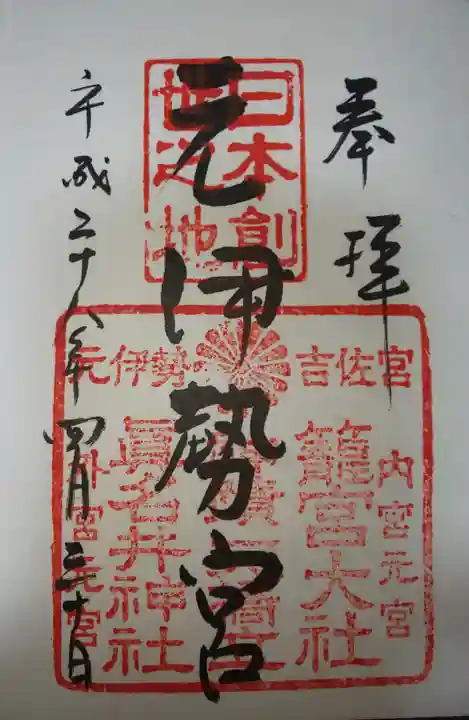 奉拝
日本創
世之地
元伊勢宮
吉佐宮
元伊勢
内宮元宮
籠宮大社
眞名井神社
外宮元宮
平成二十八年四月三十日